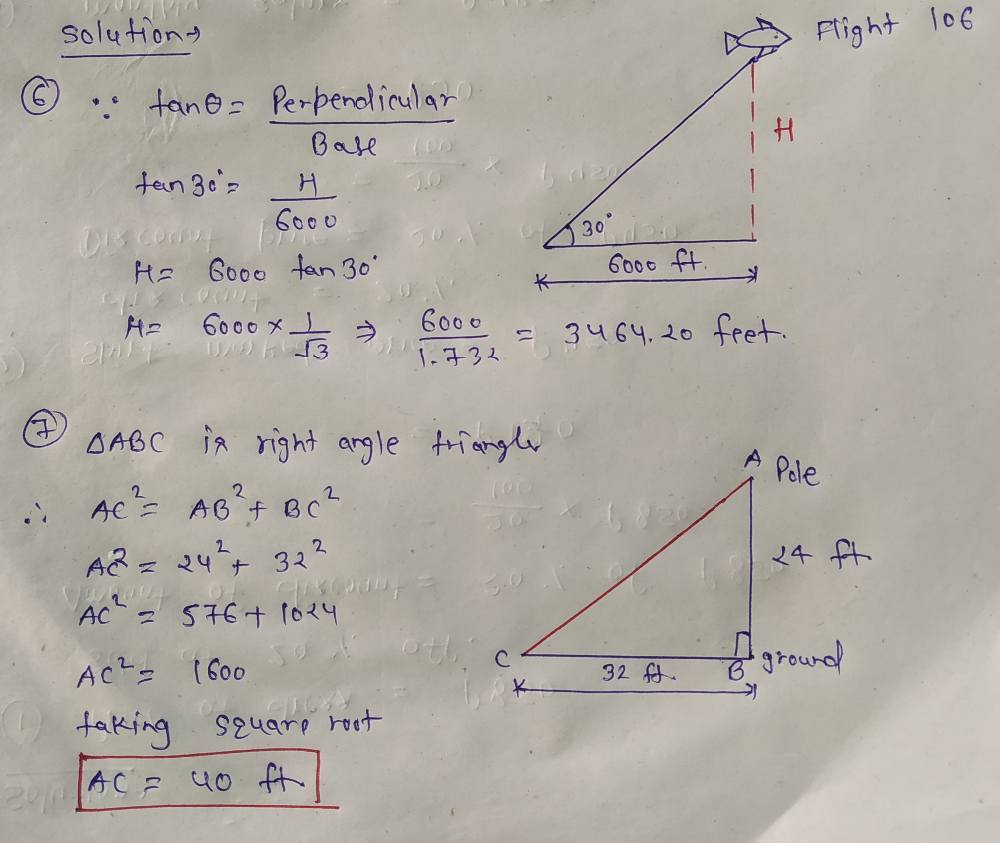 Solution→
⑥ ∵ tanθ = Perpendicular / Base
tan30° = H / 6000
H = 6000 tan30°
H = 6000 × 1/√3 ⇒ 6000/1.732 = 3464.20 feet.
Flight 106
H
30°
6000 ft.
⑦ △ABC is right angle triangle
∴ AC² = AB² + BC²
AC² = 24² + 32²
AC² = 576 + 1024
AC² = 1600
taking square root
AC = 40 ft
A Pole
24 ft
C
B ground
32 ft.